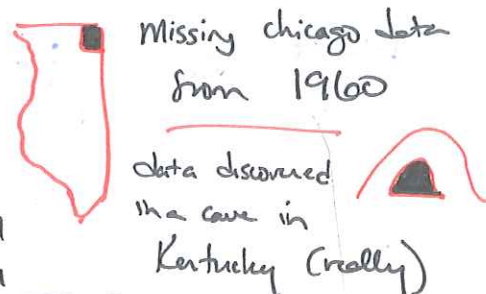 Missing chicago data
from 1960
data discovered
in a cave in
Kentucky (really)